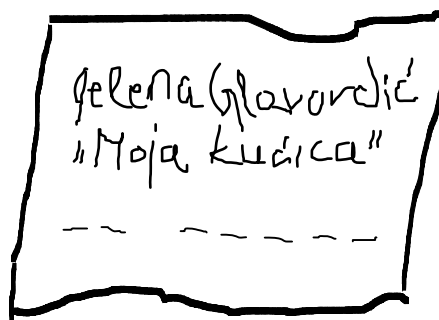 Jelena Glavurdić
„Moja kućica"